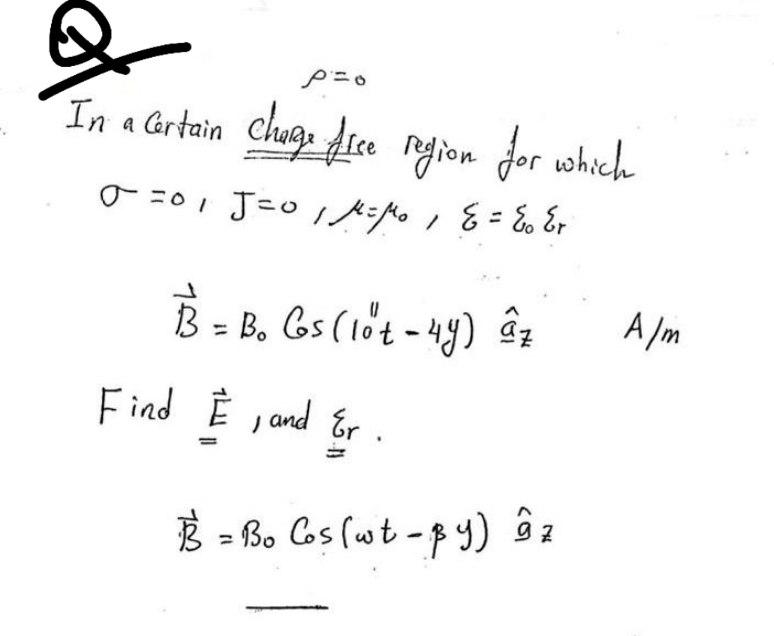 Q
ρ=0
In a Certain charge free region for which
σ=0, J=0, μ=μ₀, ε = ε₀ εr
B⃗ = B₀ Cos(10¹¹t - 4y) â_z A/m
Find E⃗, and εr.
B⃗ = B₀ Cos(ωt - βy) â_z